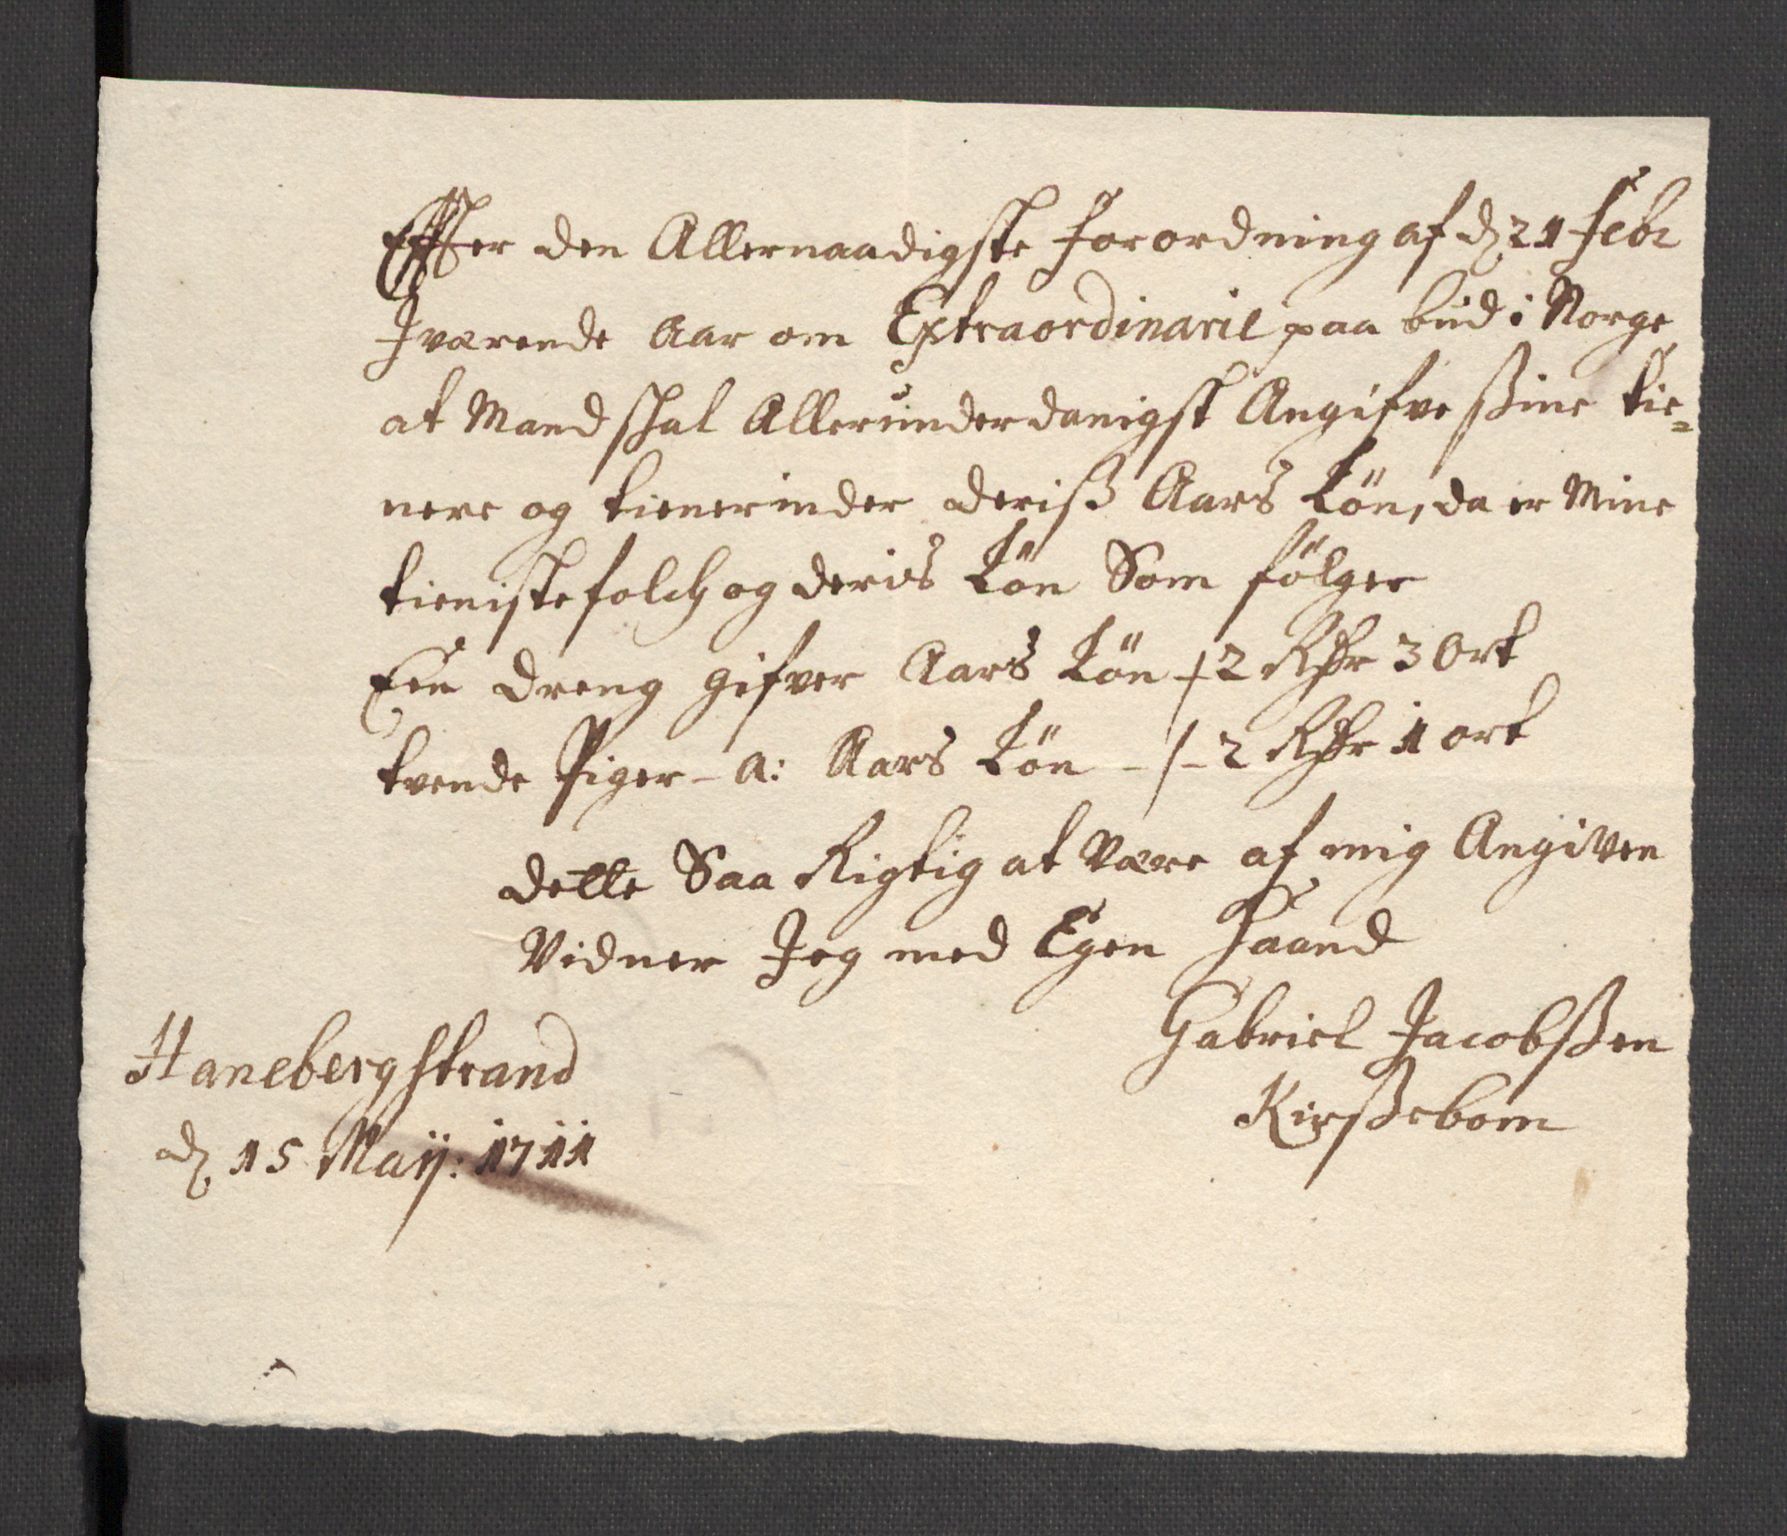 Effter den Allernaadigste forordning af d 21 febr
Jværende Aar om Extraordinarie paa bud i Norge
at Mand skal Allerunderdanigst Angifve ßine tie=
nere og tienerinder deriß Aars Løn, da er Mine
tienistefolck og deris Løn Som følger
Een dreng gifver Aars Løn / 2 Rdr 3 Ort
tvende Piger - A: Aars Løn - / - 2 Rdr 1 ort
dette Saa Rigtig at være af mig Angiven
Vidner Jeg med Egen Haand
Gabriel Jacobßen
Kirßebom
Hanebergstrand
d 15 Maij: 1711